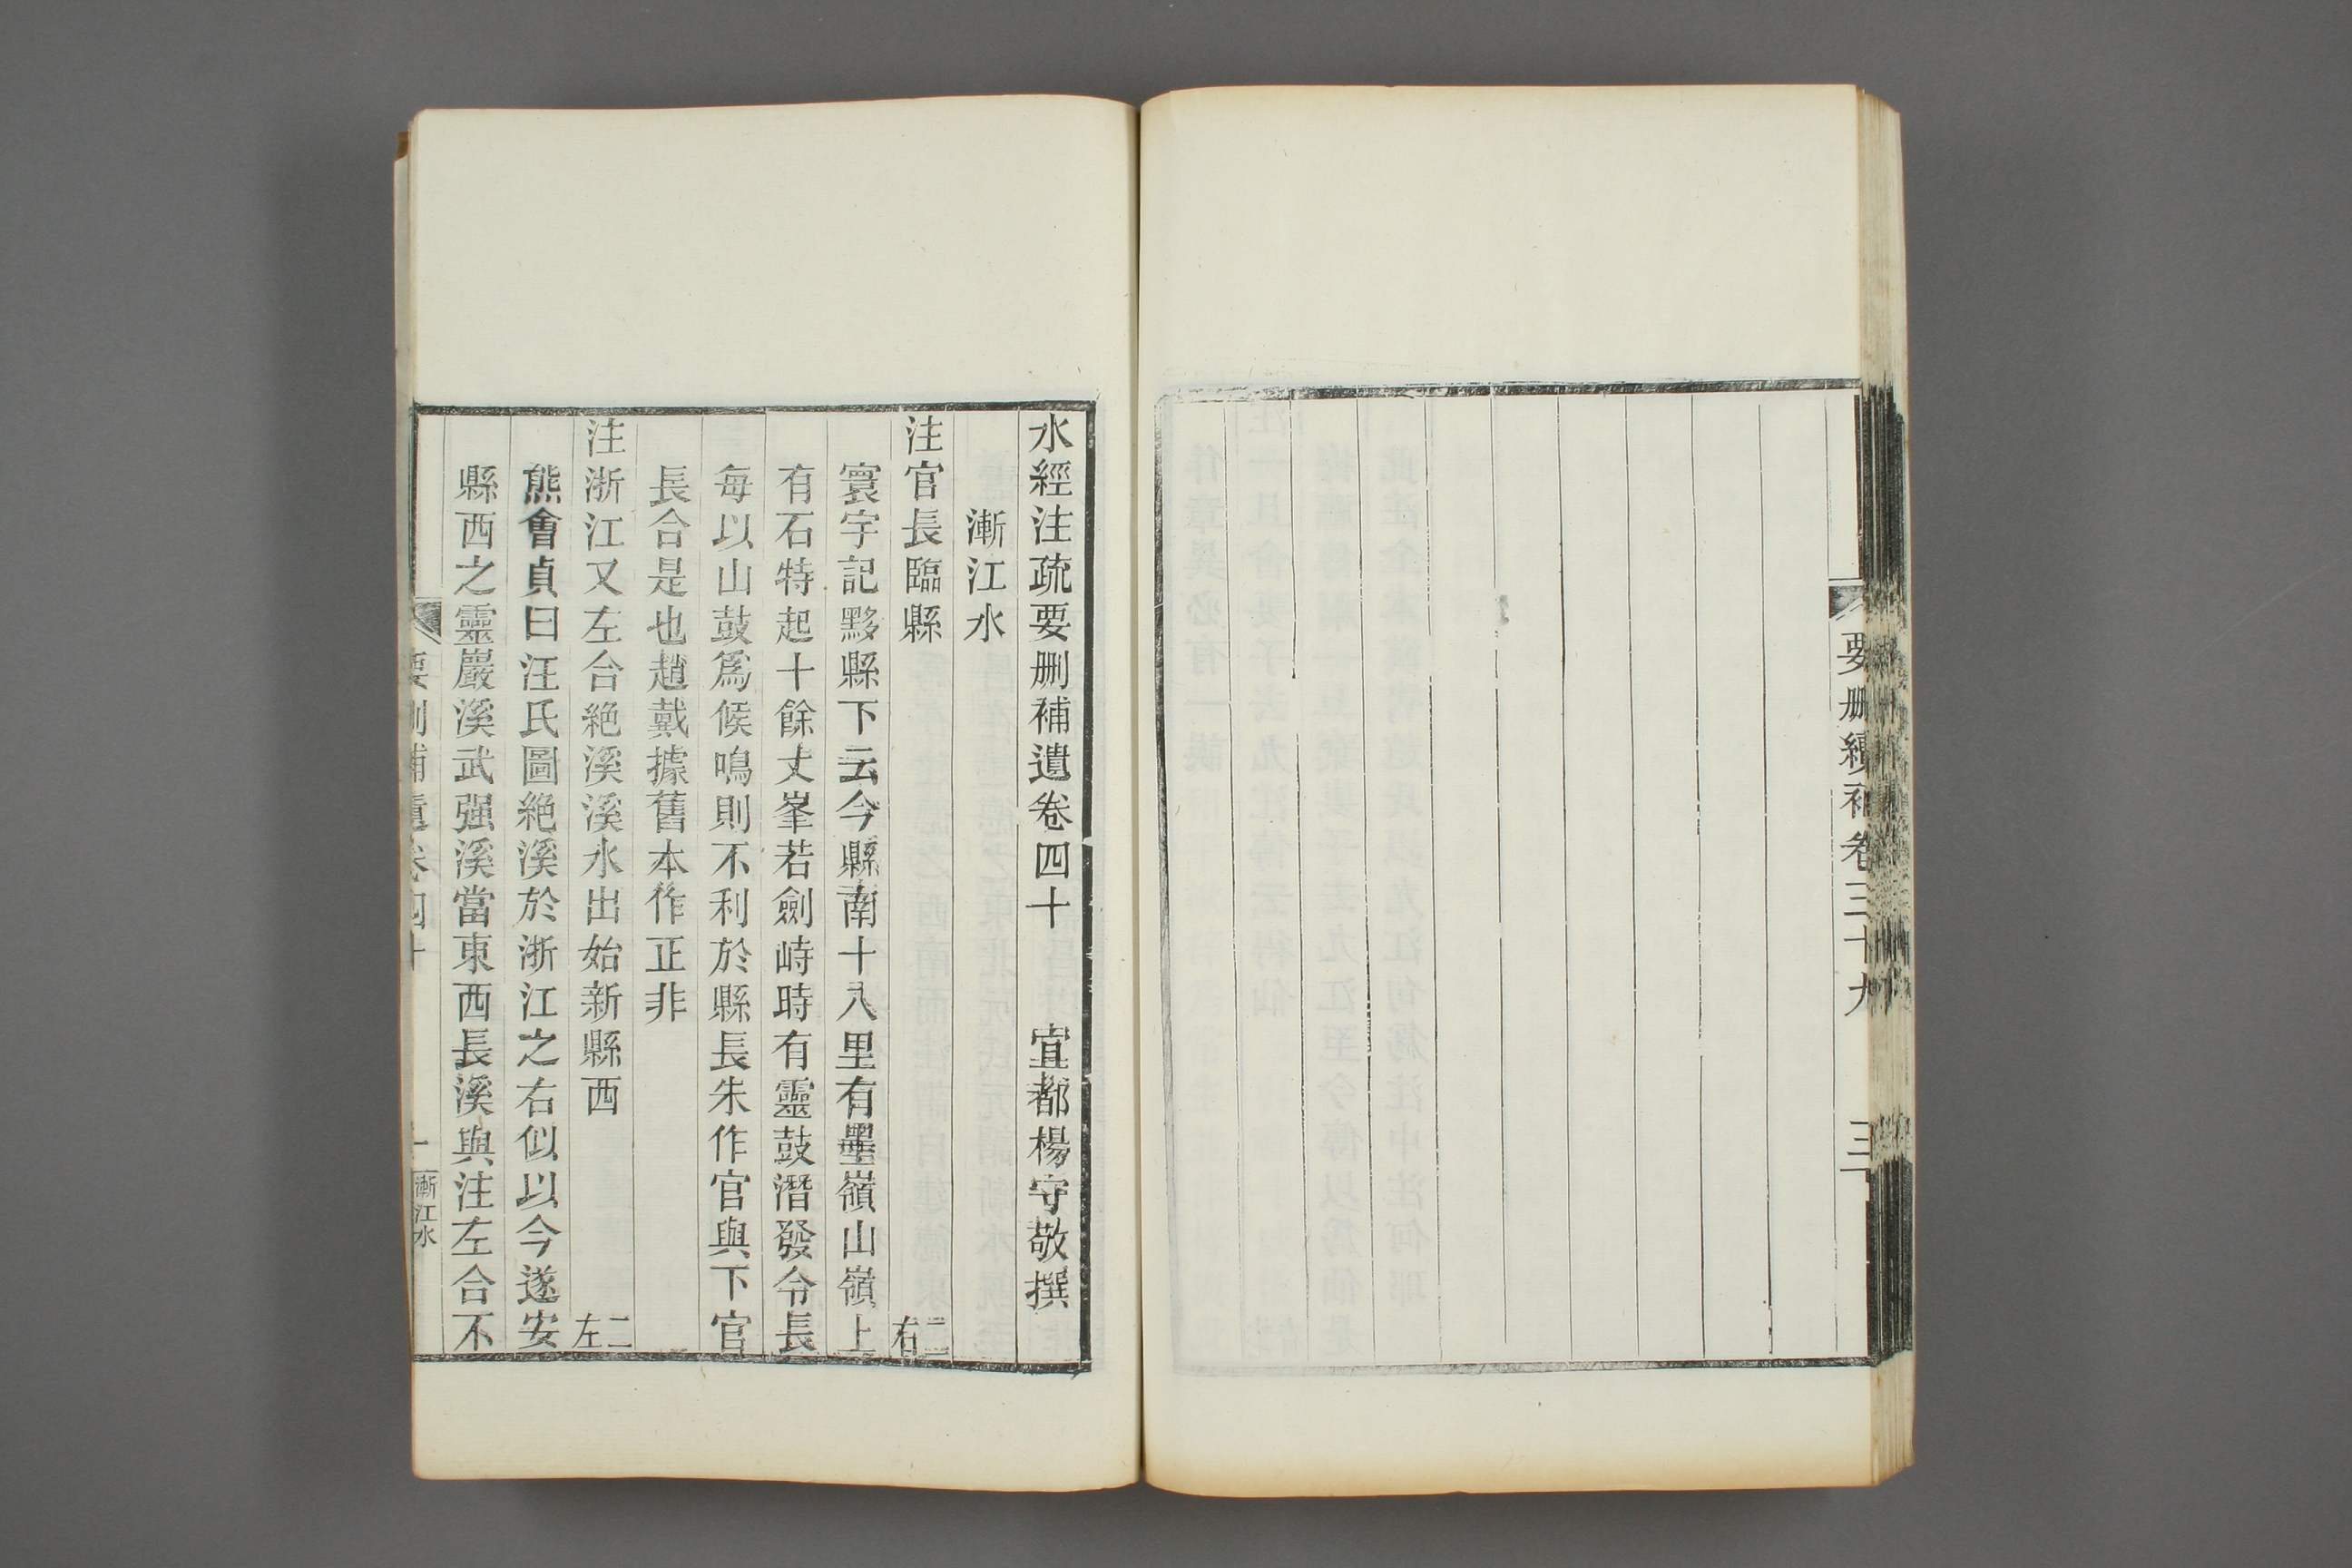 要刪續補卷三十九
三
水經注疏要刪補遺卷四十 宜都楊守敬撰
漸江水
注官長臨縣 二右
寰宇記黟縣下云今縣南十八里有墨嶺山嶺上
有石特起十餘丈峯若劍峙時有靈鼓潛發令長
每以山鼓爲候鳴則不利於縣長朱作官與下官
長合是也趙戴據舊本作正非
注浙江又左合絶溪溪水出始新縣西 二左
熊會貞曰汪氏圖絶溪於浙江之右似以今遂安
縣西之靈巖溪武强溪當東西長溪與注左合不
要刪補遺卷四十
一
漸江水